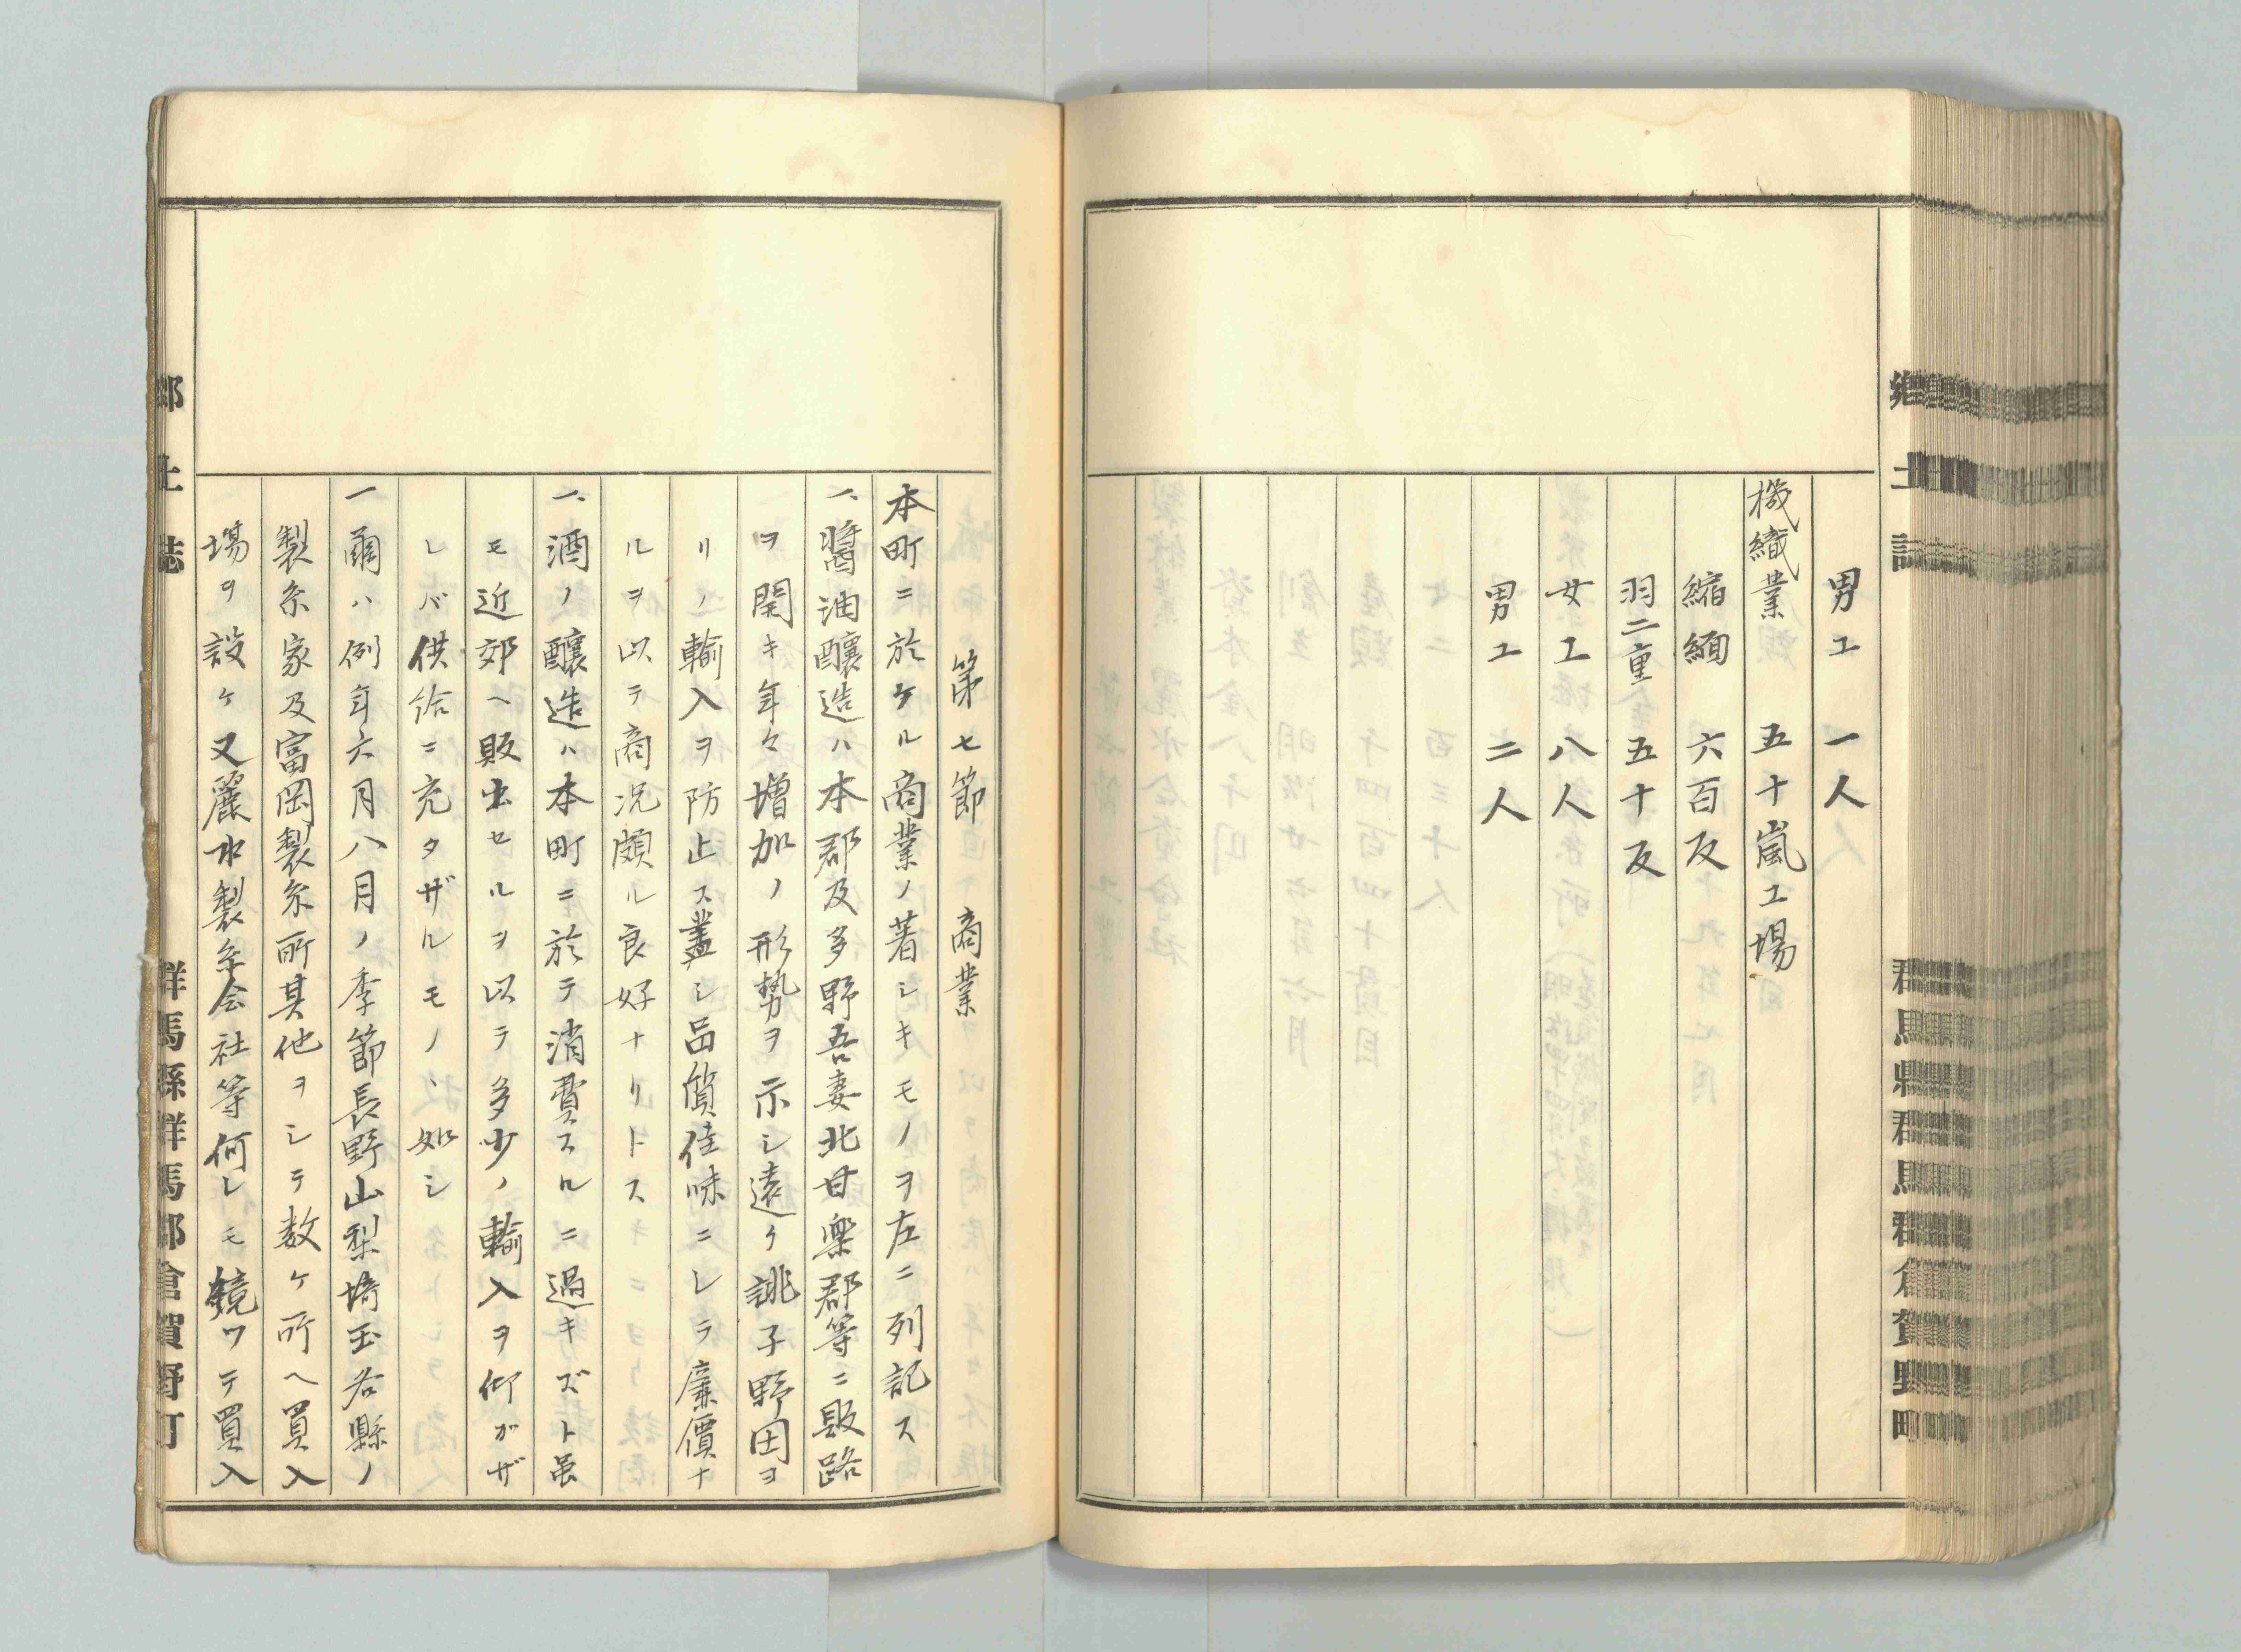 郷土誌
群馬縣群馬郡倉賀野町
男工 一人
機織業 五十嵐工場
縮緬 六百反
羽二重五十反
女工 八人
男工 二人
第七節 商業
本町ニ於ケル商業ノ著シキモノヲ左ニ列記ス
一、醬油釀造ハ本郡及多野吾妻北甘楽郡等ニ販路
ヲ開キ年々増加ノ形勢ヲ示シ遠ク誂子野田ヲ
リノ輸入ヲ防止ス蓋シ品質佳味ニシテ廉價ナ
ルヲ以テ商況頗ル良好ナリトス
一、酒ノ釀造ハ本町ニ於テ消費スルニ過キズト虽
モ近郊ヘ販出セルヲ以テ多少ノ輸入ヲ仰ガザ
レバ供給ニ充タザルモノヽ如シ
一 繭ハ例年六月八月ノ季節長野山梨埼玉各縣ノ
製糸家及富岡製糸所其他ヲシテ数ヶ所ヘ買入
場ヲ設ケ又麗水製糸会社等何レモ競ツテ買入
郷土誌
群馬縣群馬郡倉賀野町